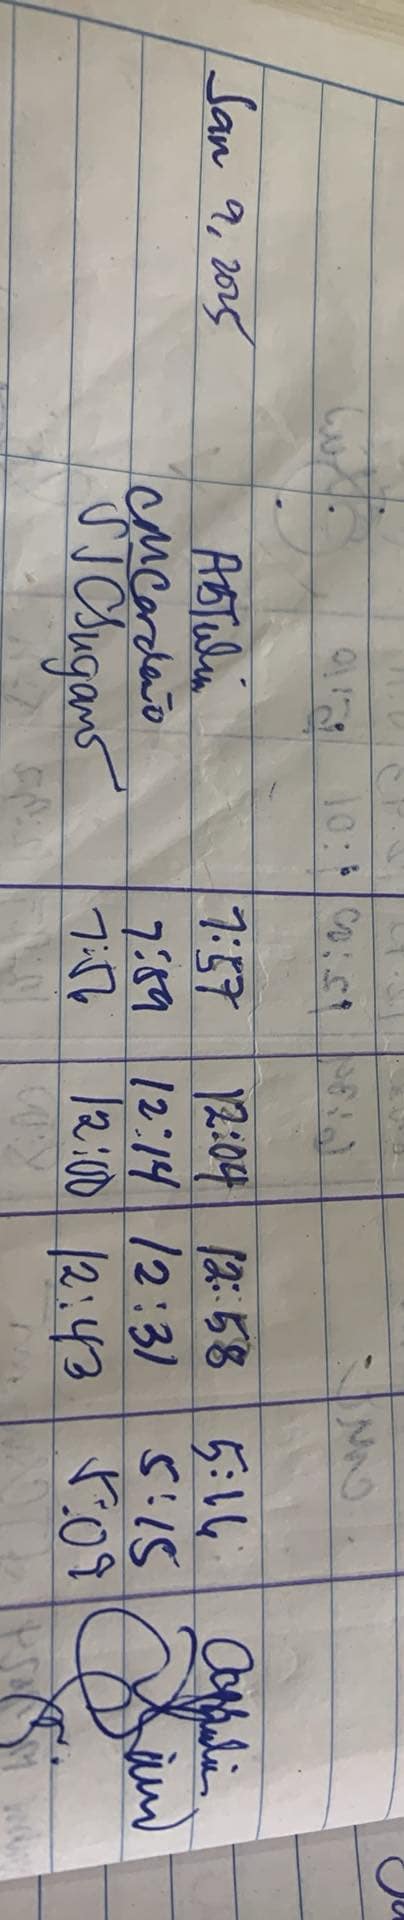 Jan 9, 2025 ABTulin 7:57 12:04 12:58 5:16
CMCardeño 7:59 12:14 12:31 5:15
7:56 12:00 12:43 5:09